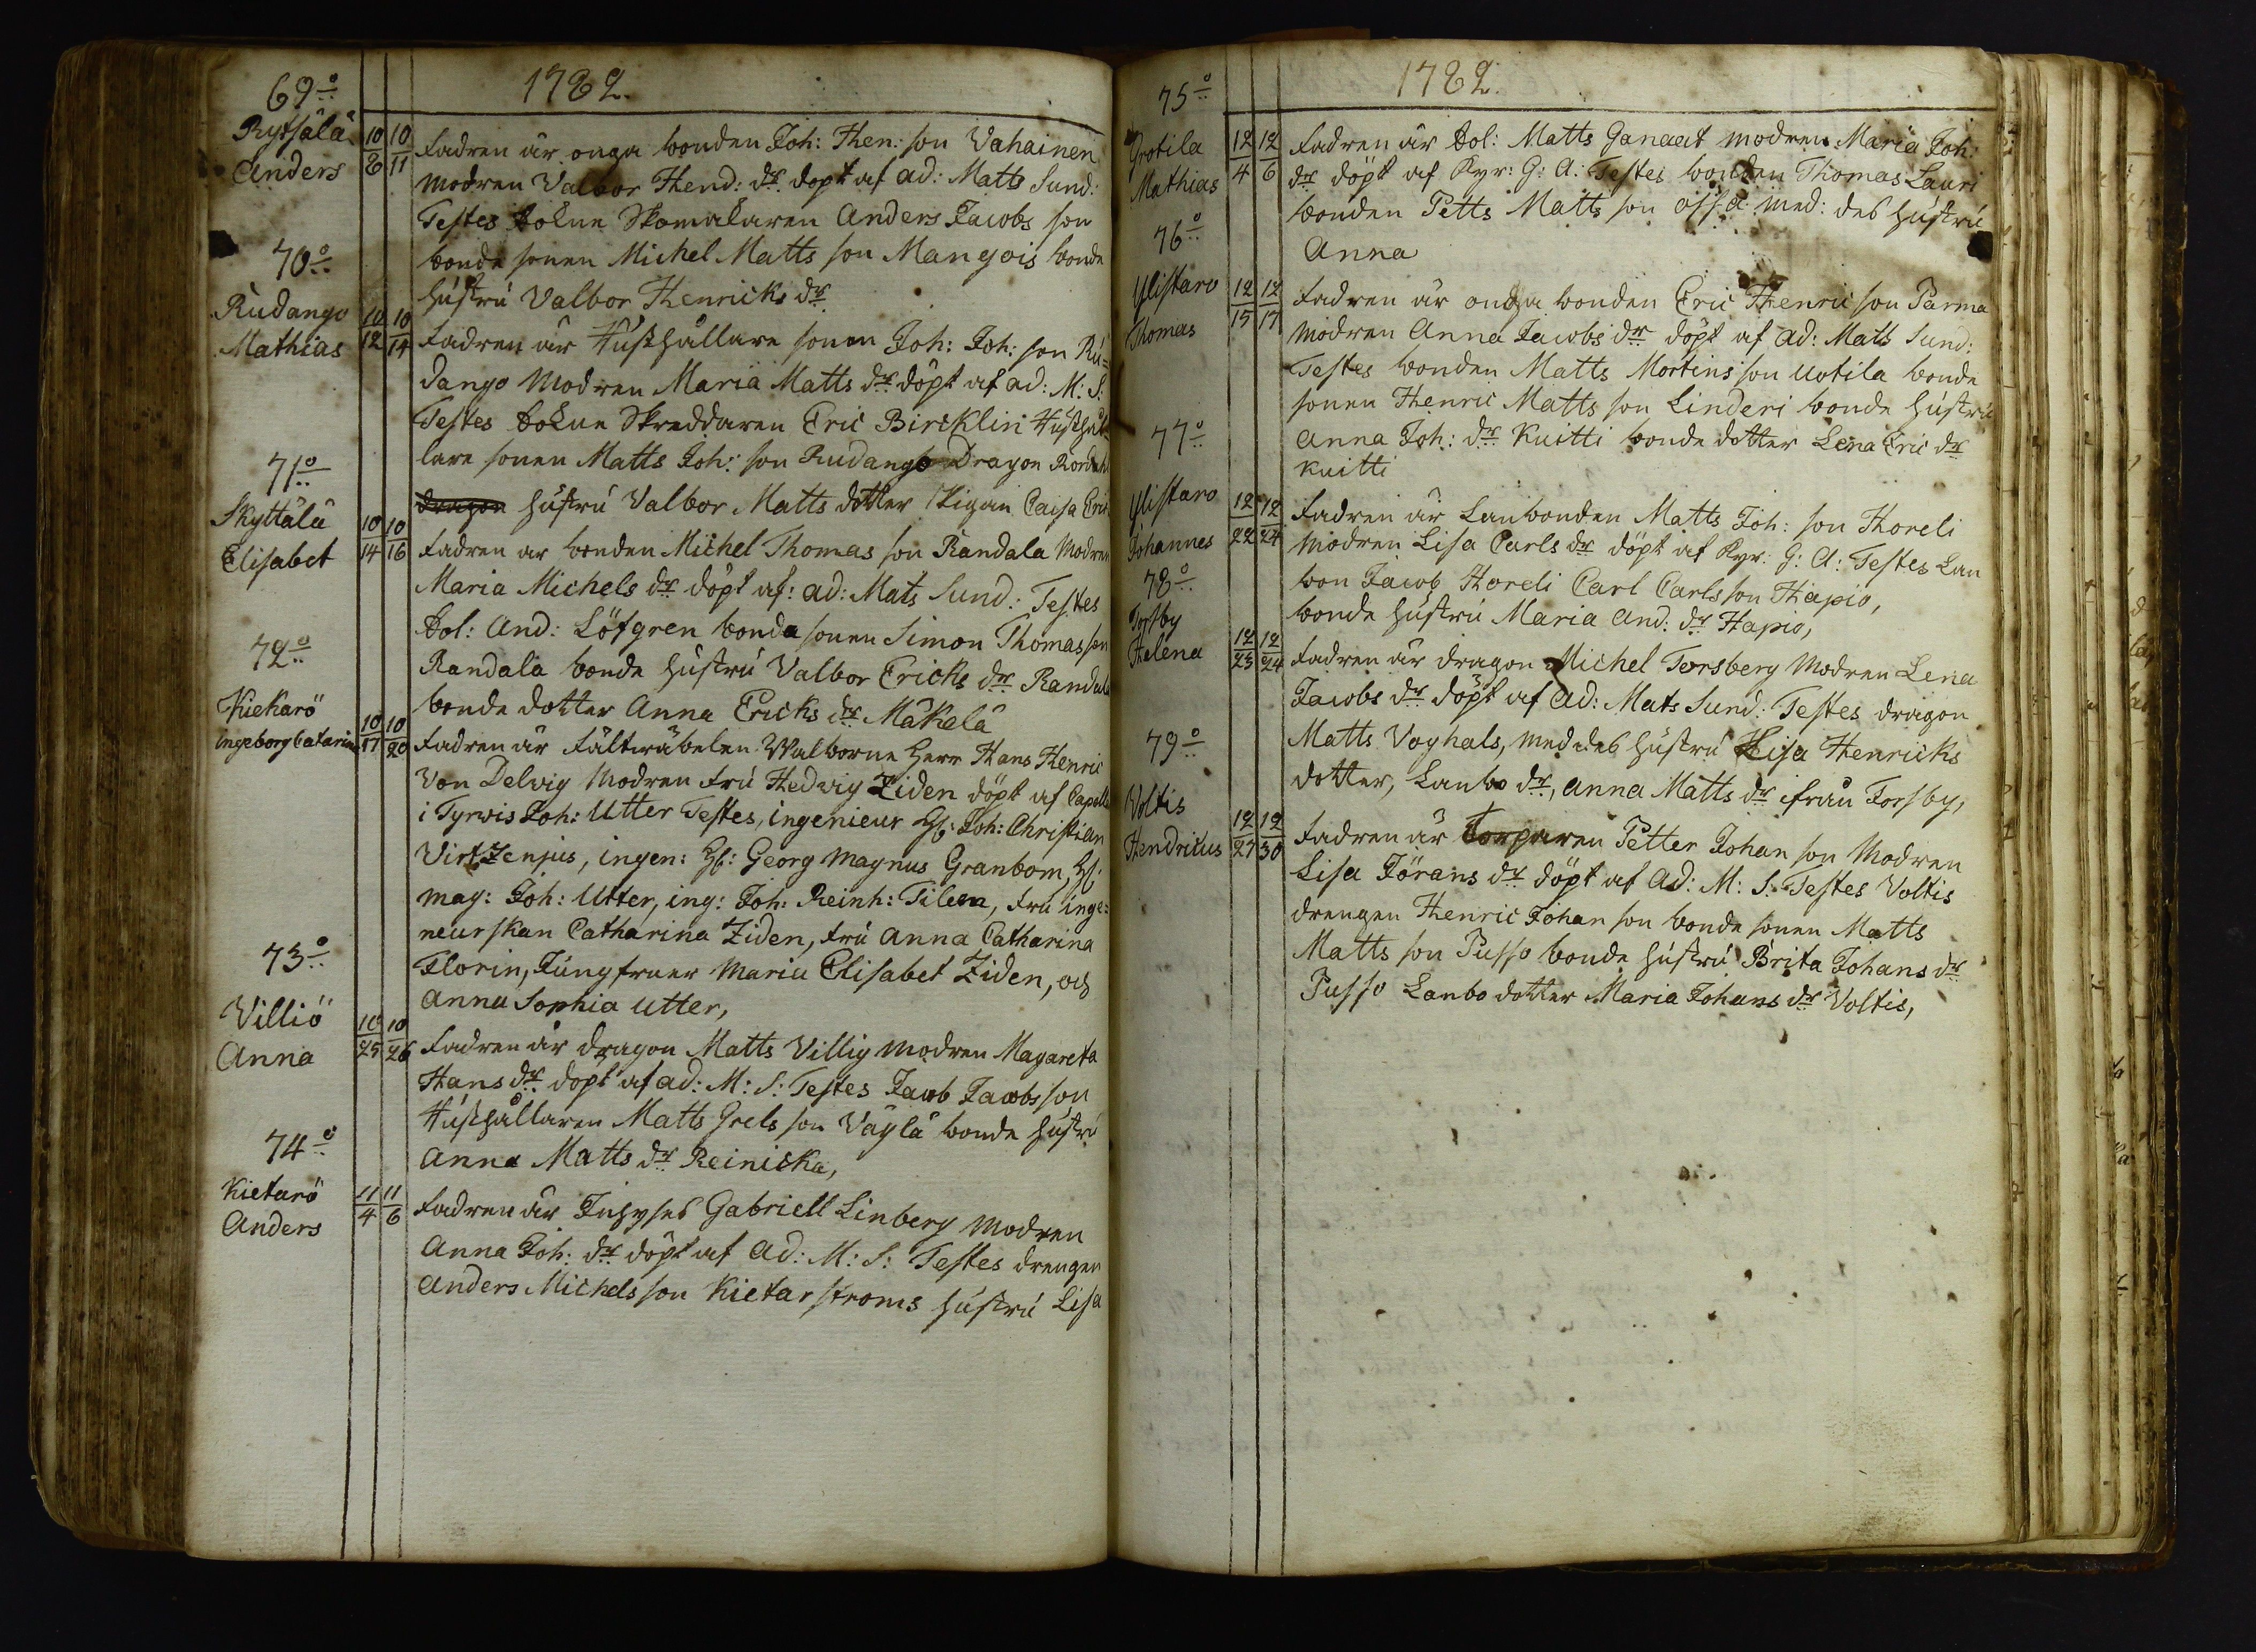 69o
1782.
Rytsälä 10 10
Anders 8 11
Fadren är onga bonden Joh: Hen: son Vahainen
modren Valbor Hend: dr döpt af ad: Matts Sund:
Testes Sokne Skomakaren Anders Jacobs son
bonde sonen Michel Matts son Mangois bonde
hustru Valbor Henricks dr
70o
Rudango 10 10
Mathias 12 14
Fadren är Hushållare sonen Joh: Joh: son Ru-
dango Modren Maria Matts dr döpt af ad: M: S:
Testes Sokne Skreddaren Eric Bircklin Hushål-
lare sonen Matts Joh: son Rudango Dragon
dragon hustru Valbor Matts dotter Pigan Caisa Eric
71o
Skyttälä 10 10
Elisabet 14 16
Fadren är bonden Michel Thomas son Randala Modren
Maria Michels dr döpt af: ad: Mats Sund: Testes
Sol: And: Löfgren bonde sonen Simon Thomas son
Randala bonde hustru Valbor Ericks dr Randala
bonde dotter Anna Ericks dr Mäkelä
72o
Kiekarö 10 10
ingeborg Catarina 17 20
Fadren är Fältwäbelen Walborne Herr Hans Henric
Von Delwig Modren Fru Hedwig Ziden döpt af Capell:
i Tyrwis Joh: Utter Testes, ingenieur H: Joh: Christian
Virtzenjus, ingen: H: Georg Magnus Granbom, H:
mag: Joh: Utter, ing: Joh: Reinh: Tileen, Fru inge-
neurskan Catharina Ziden, Fru Anna Catharina
Florin, Jungfruer Maria Elisabet Ziden, och
Anna Sophia Utter,
73o
Villiö 10 10
Anna 25 26
Fadren är dragon Matts Villig Modren Magareta
Hans dr döpt af ad: M: S: Testes Jacob Jacobs son
Hushållaren Matts Grels son Väylä bonde hustru
Anna Matts dr Reinicka,
74o
Kietarö 11 11
Anders 4 6
Fadren är Inhyses Gabriell Linberg Modren
Anna Joh: dr döpt af Ad: M: S: Testes drengen
Anders Michels son Kietarstroms hustru Lisa
1782.
75o
Grotila 12 12
Mathias 4 6
Fadren är Sol: Matts Ganaat modren Maria Joh:
dr döpt af Kyr: G: A: Testes bonden Thomas Lauri
bonden Petts Matts son ossa med: des hustru
Anna
76o
Ylistaro 12 12
Thomas 15 17
Fadren är onga bonden Eric Henric son Parma
modren Anna Jacobs dr döpt af ad: Mats Sund:
Testes bonden Matts Mortins son Uotila bonde
sonen Henric Matts son Linderi bonde hustru
Anna Joh: dr Kuitti bonde dotter Lena Eric dr
Kuitti
77o
Ylistaro 12 12
Johannes 22 24
Fadren är Lanbonden Matts Joh: son Horeli
modren Lisa Carls dr döpt af Kyr: G: A: Testes Lan
bon Jacob Horeli Carl Carls son Hapio,
bonde hustru Maria And: dr Hapio,
78o
Forsby 12 12
Helena 23 24
Fadren är dragon Michel Torsberg Modren Lena
Jacobs dr döpt af Ad: Mats Sund: Testes dragon
Matts Voghals, med des hustru Lisa Henricks
dotter, Lanbo dr, Anna Matts dr ifrån Forsby,
79o
Voltis 12 12
Hendrikus 27 30
Fadren är Torparen Petter Johan son Modren
Lisa Jörans dr döpt af Ad: M: S: Testes Voltis
drengen Henric Johan son bonde sonen Matts
Matts son Pusso bonde hustru Brita Johans dr
Pusso Lanbo dotter Maria Johans dr Voltis,